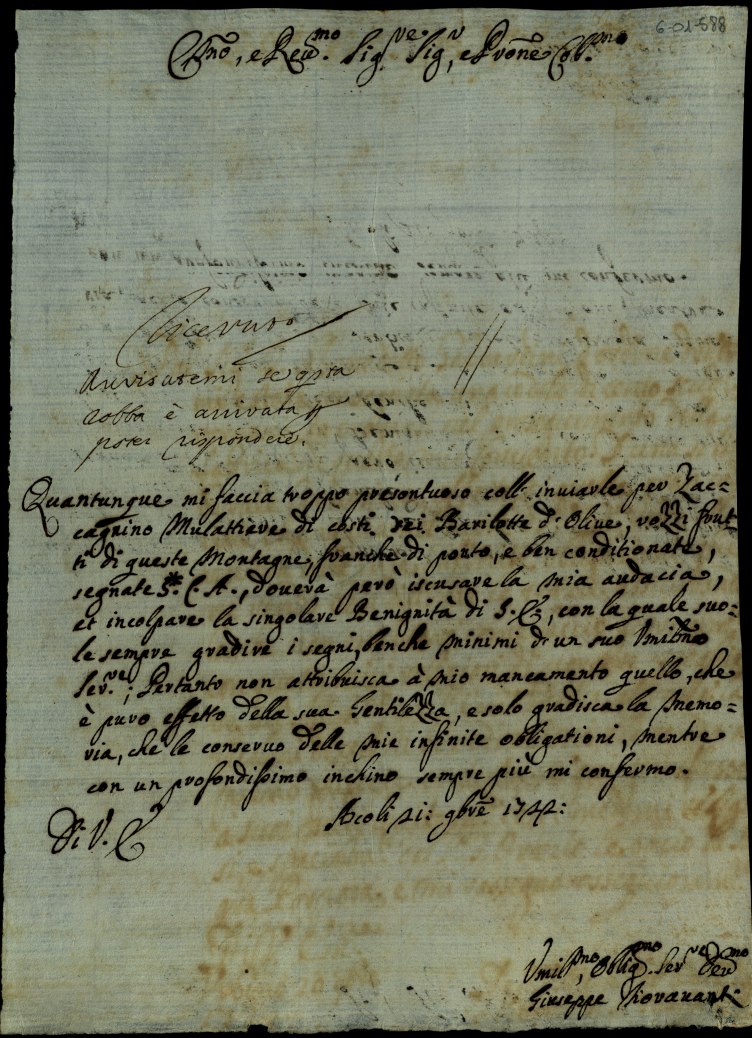 6-01-588
Em̃o, e Reu.mo Sig.re Sig.r, e Pron̄e Col.mo
Ricevuto
Avvisatemi se qsta
robba è arrivata p
poter rispondere.
Quantunque mi faccia troppo presontuoso coll' inviarle per Zac=
cagnino Mulattiere di costì sei Barilotte d'Olive, rozzi frut=
ti di queste Montagne, franche di porto, e ben conditionate,
segnate S. C. A., douerà però iscusare la mia audacia,
et incolpare la singolare Benignità di S. E., con la quale suo=
le sempre gradire i segni, benche minimi d'un suo Vmil̃mo
ser.re; Pertanto non attribuisca à mio mancamento quello, che
è puro effetto della sua Gentilezza, e solo gradisca la memo=
ria, che le conseruo delle mie infinite obligationi, mentre
con un profondissimo inchino sempre più mi confermo.
Di V. E.
Ascoli 21: 9bre
Vmil.mo, Oblig.mo Ser.re Deu.mo
Giuseppe